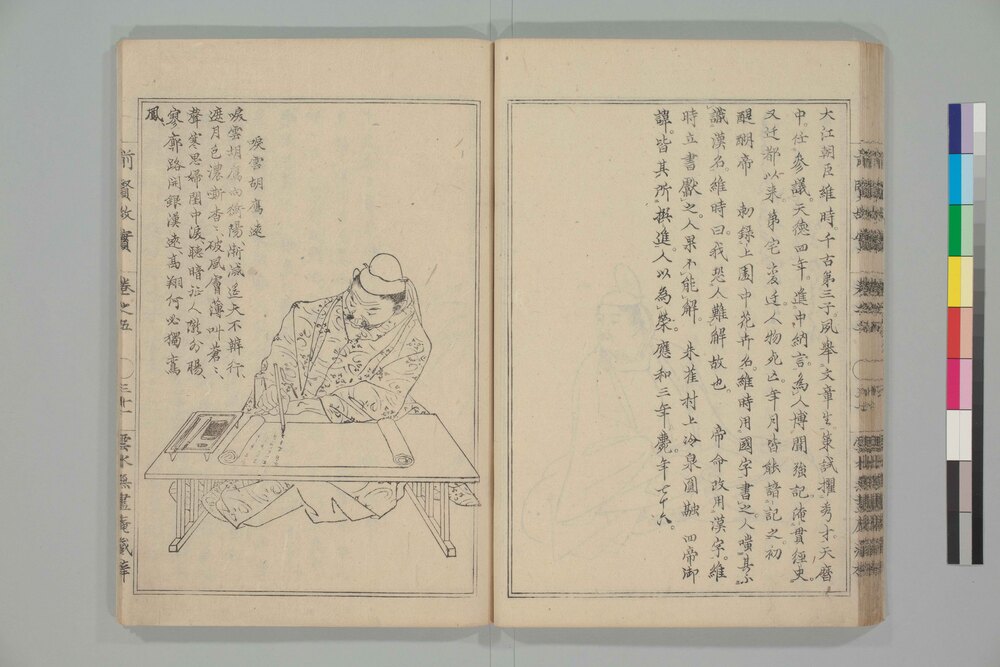 大江朝臣維時。千古第三子。夙舉文章生。策試擢秀才。天曆
中。仕參議。天德四年。進中納言。為人博聞強記。淹貫經史。
又迁都以來。第宅变迁。人物死亡。年月皆能諳記之。初
醍醐帝 勅録上園中花卉名。維時用國字書之。人嗤其不
識漢名。維時曰。我恐人難解故也。 帝命改用漢字。維
時立書獻之。人果不能解。 朱雀村上冷泉圓融 四帝御
諱。皆其所撰進。人以為榮。應和三年薨。年七十六。
唳雲胡鴈遠
唳雲胡鴈向衡陽漸滅遥天不辨行
遮月色濃嘶杳〻破風膚薄叫蒼〻
聲寒思婦閨中淚聽暗征人隴外腸
寥廓路開銀漢遠高翔何必獨鸞
鳳
前賢故實 卷之五 三十一 雲水無盡庵藏梓